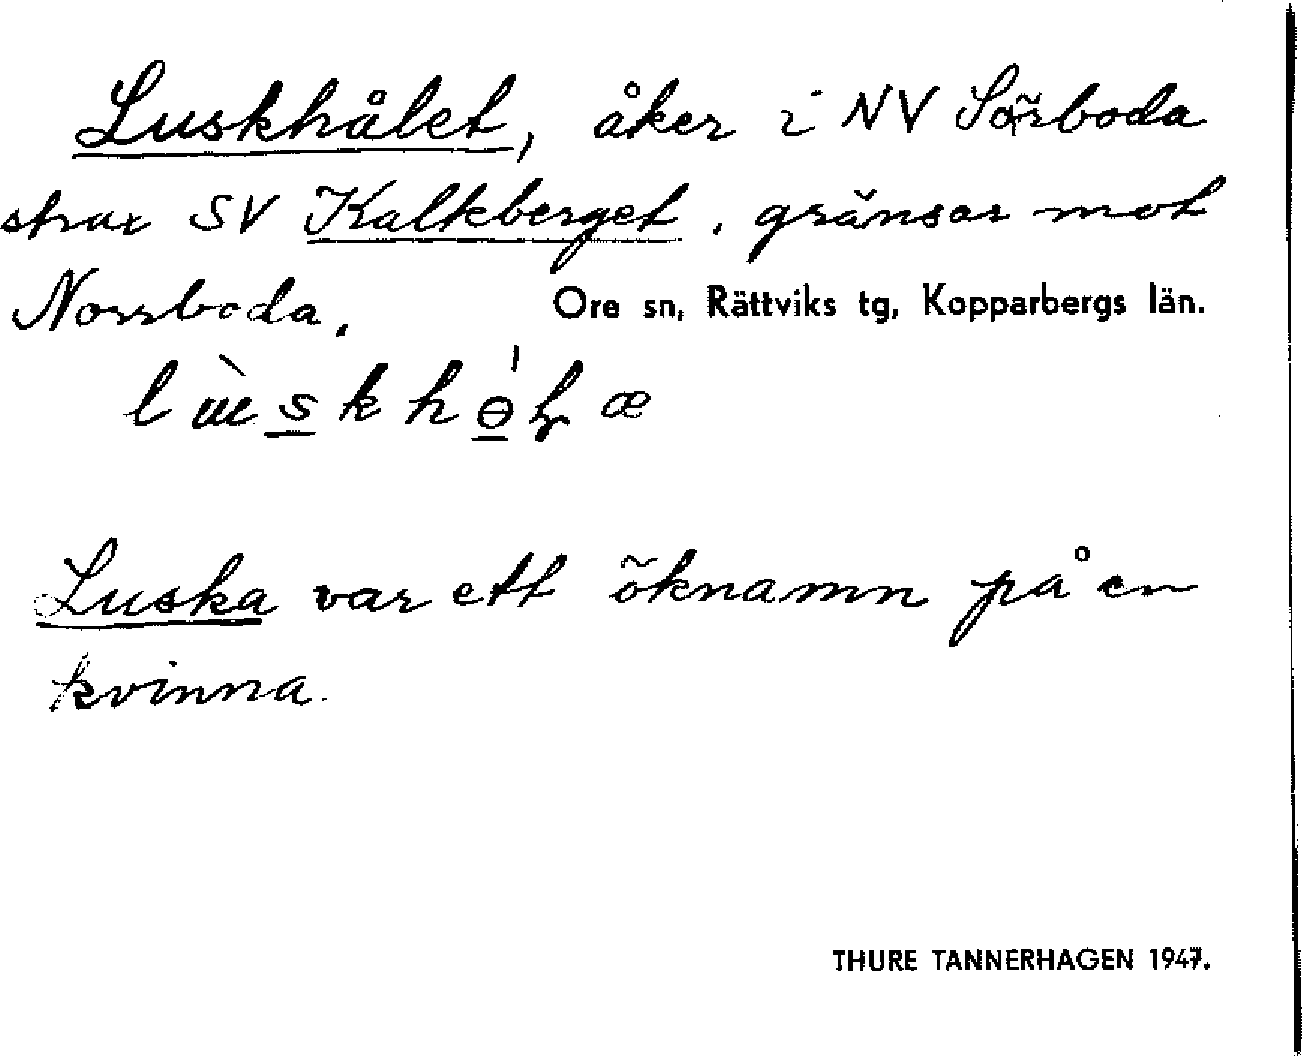 Luskhålet, åker i NV Sörboda
strax SV Kalkberget, gränsar mot
Norrboda. Ore sn, Rättviks tg, Kopparbergs län.
Luska var ett öknamn på en
kvinna.
THURE TANNERHAGEN 1947.